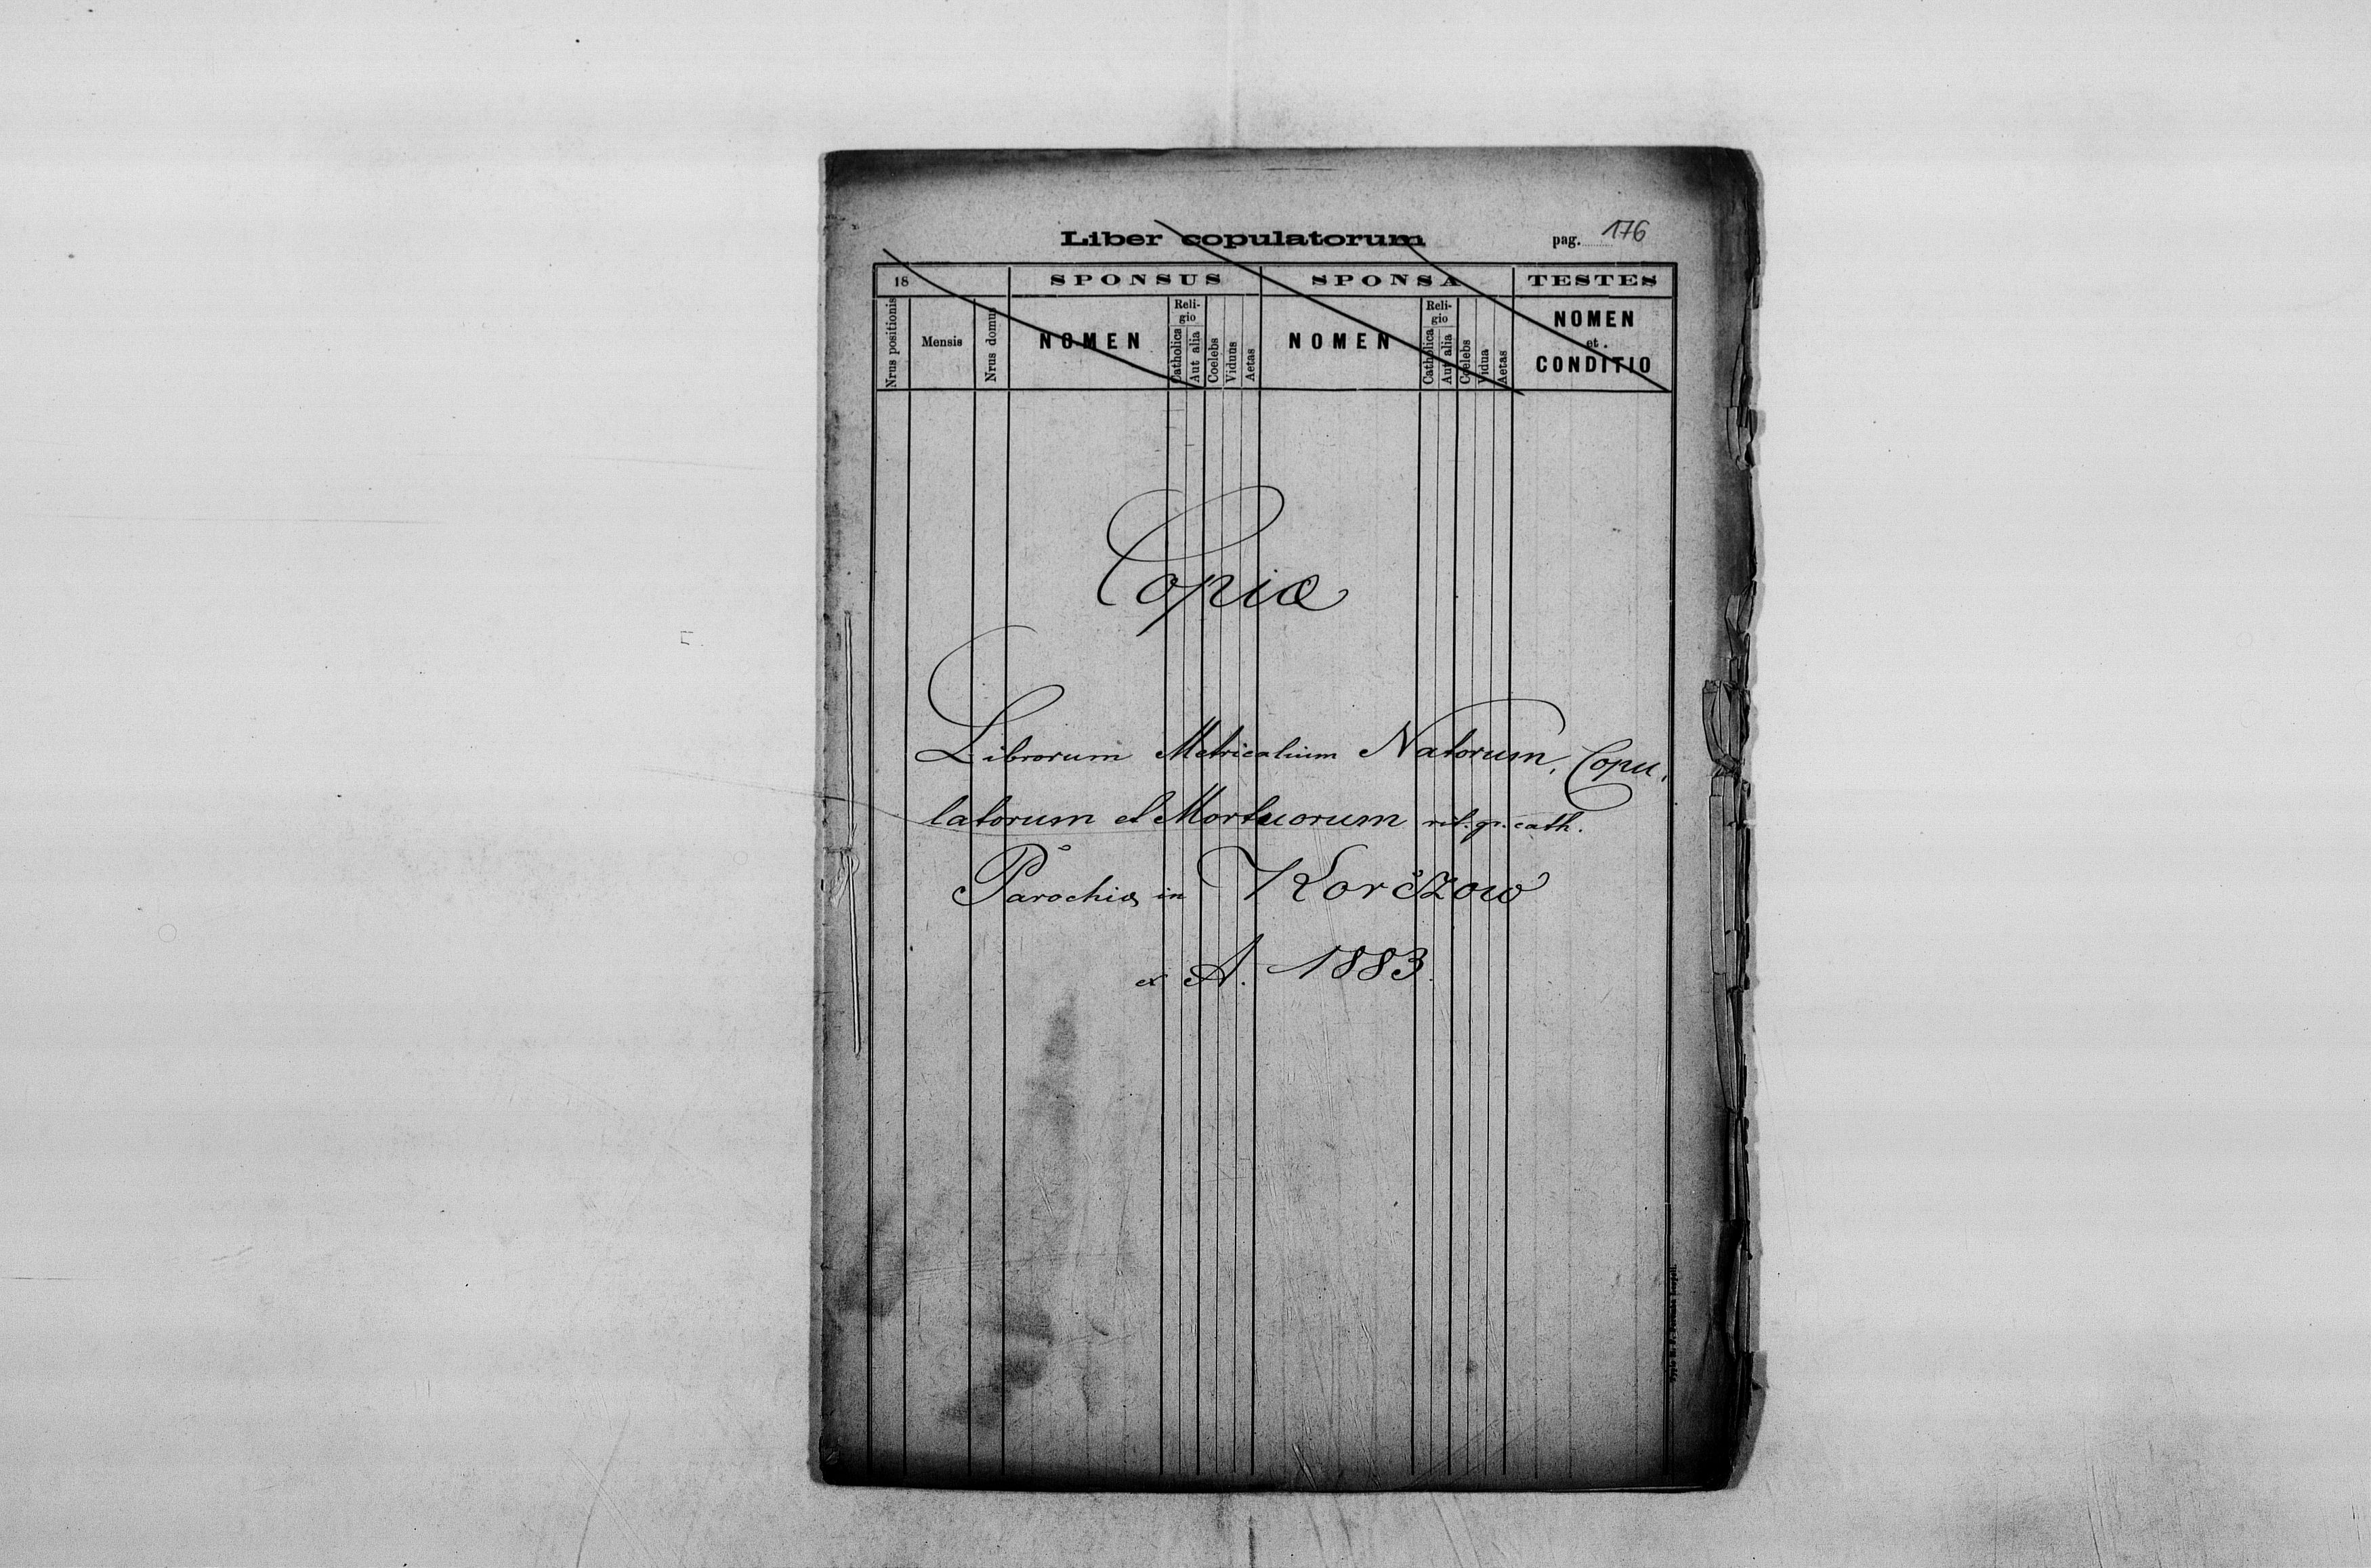 Liber copulatorum pag. 176
18 SPONSUS SPONSA TESTES
Nrus positionis Mensis Nrus domus NOMEN Religio Catholica Aut alia Coelebs Viduus Aetas NOMEN Religio Catholica Aut alia Coelebs Vidua Aetas NOMEN et CONDITIO
Copiæ
Librorum Metricalium Natorum, Copu-
latorum et Mortuorum rit. gr. cath.
Parochiæ in Korczow
ex A. 1883.